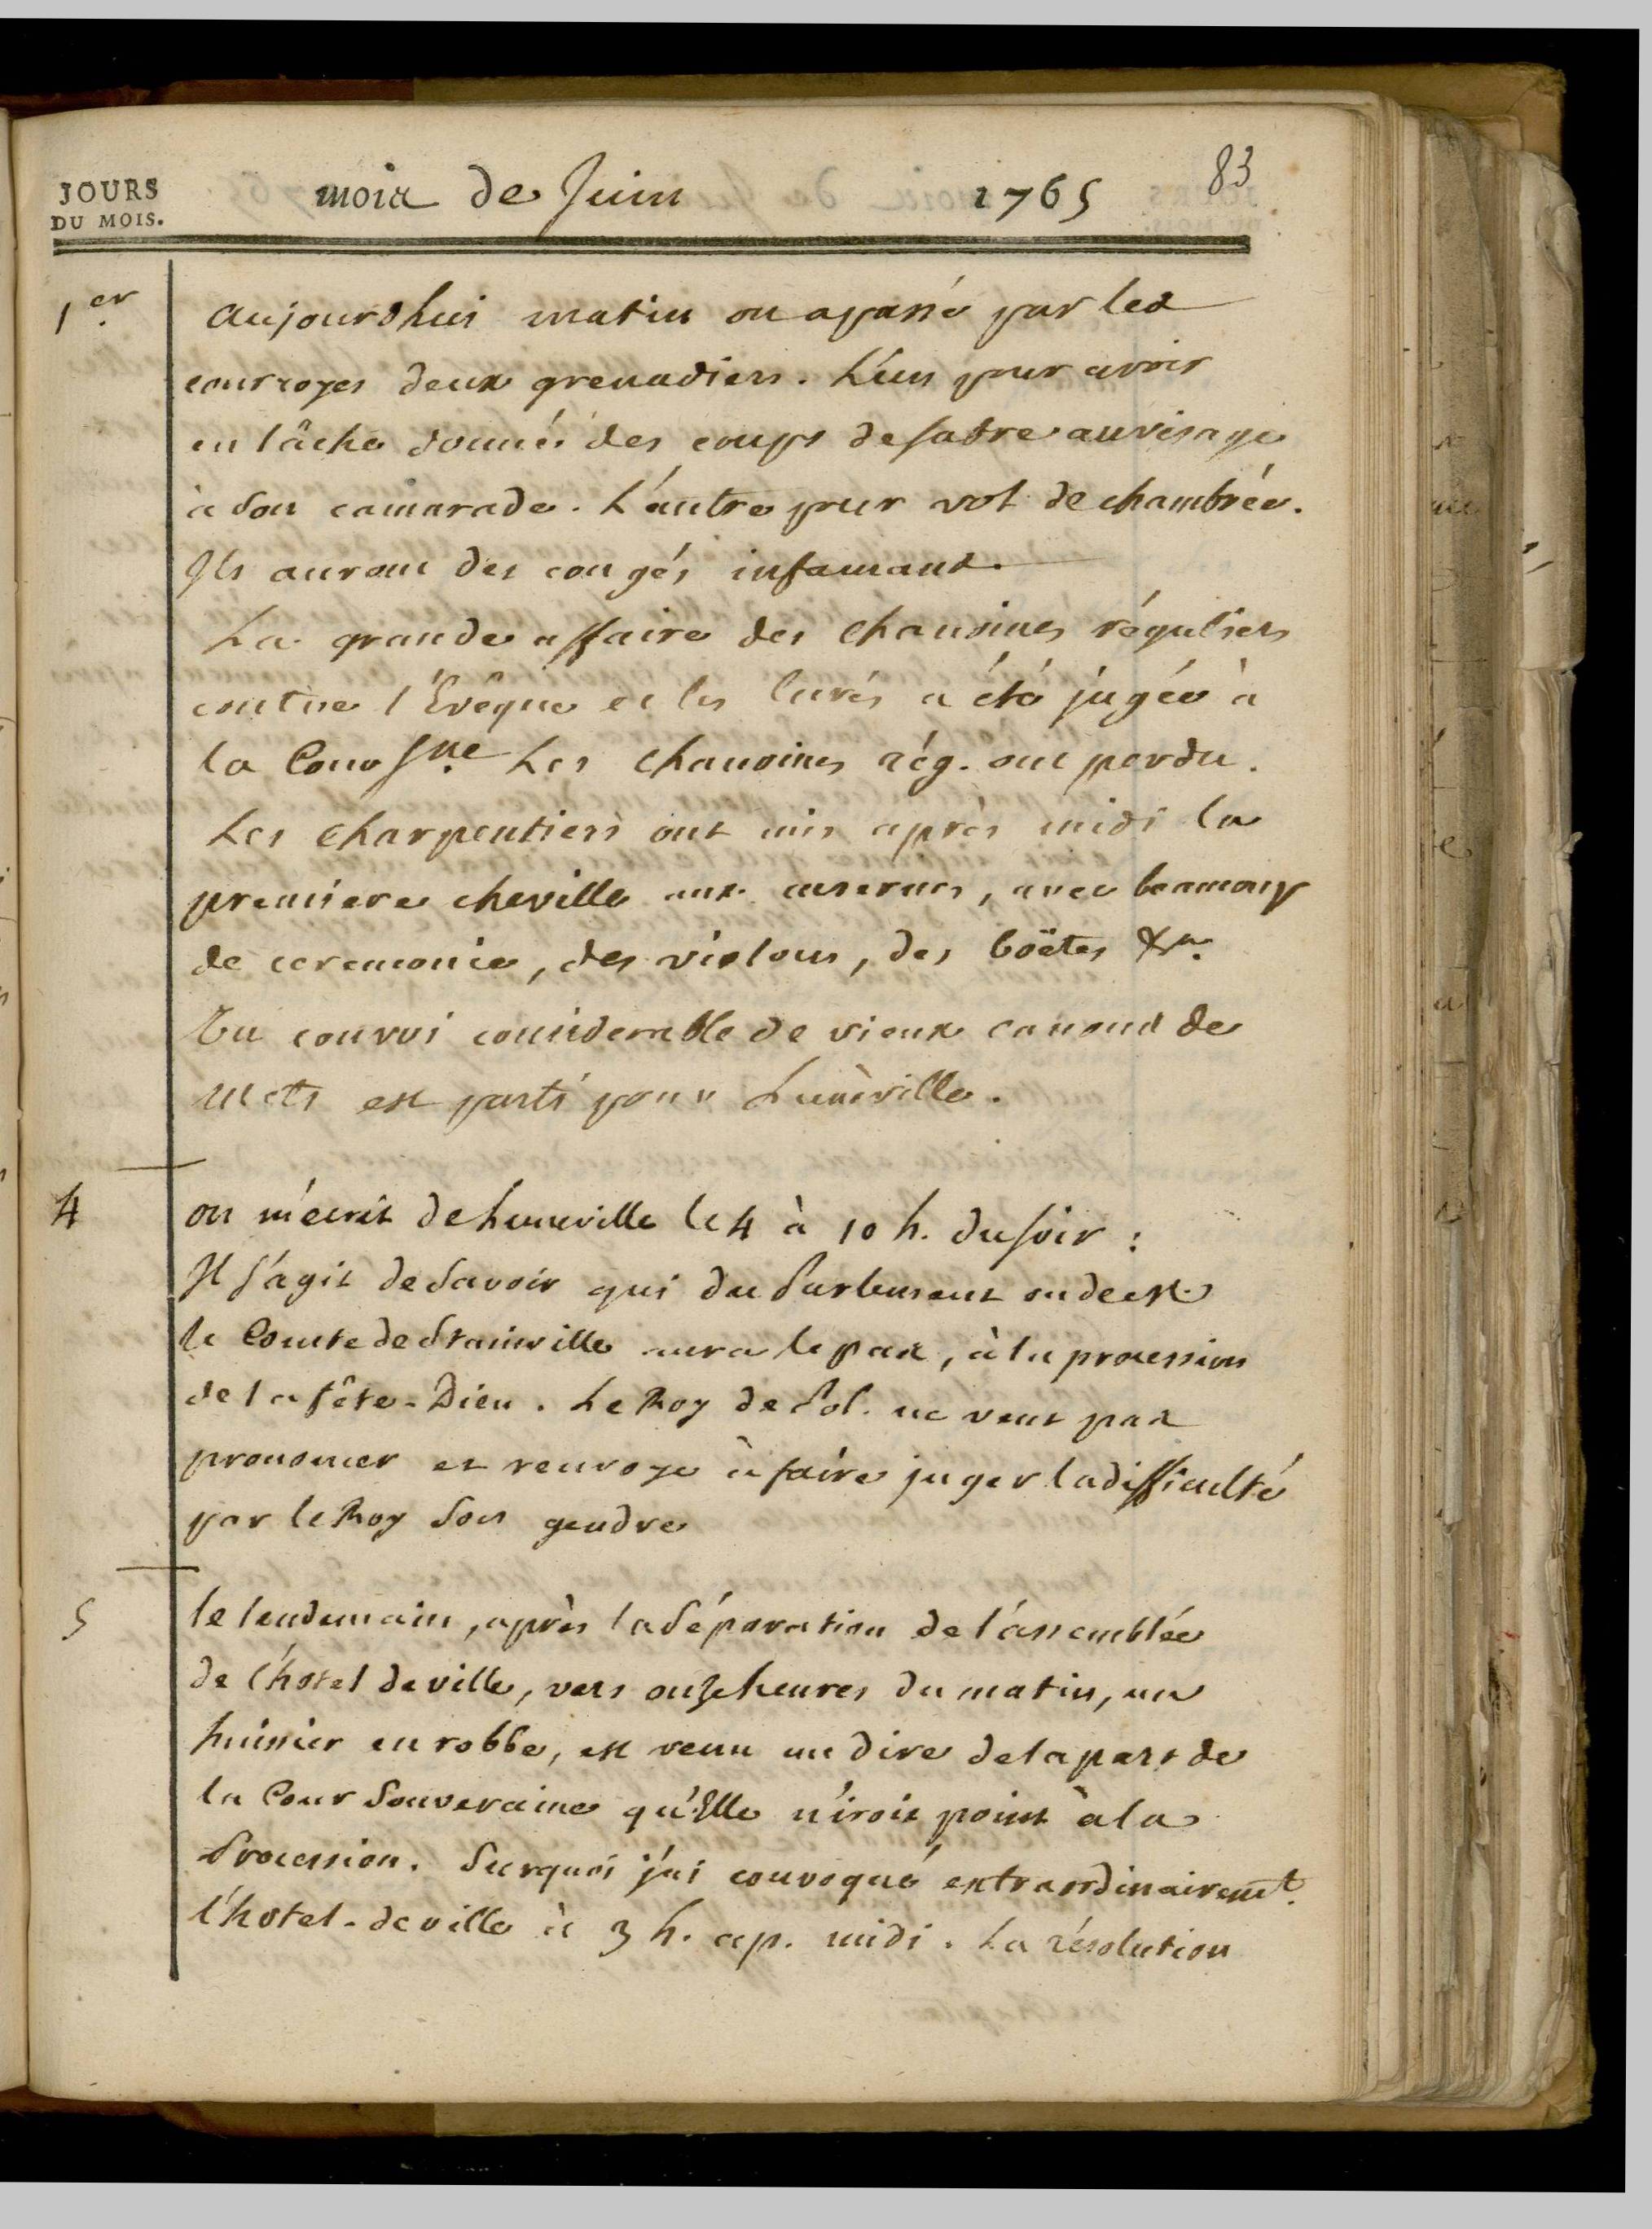 83
JOURS
DU MOIS.
mois de Juin 1765
1er. aujourdhui matin on a passé par les
courroyes deux grenadiers. L'un pour avoir
en lâche donné des coups de sabre au visage
à son camarade. L'autre pour vol de chambrée.
Ils auront des congés infamants.
La grande affaire des chanoines réguliers
contre l'Evêque et les Curés a été jugée à
la Cour Sne. Les chanoines rég. ont perdu.
Les charpentiers ont mis après midi la
premiere cheville aux casernes, avec beaucoup
de ceremonie, des violons, des boëtes &a.
Un convoi considerable de vieux canons de
Mets est parti pour Lunèville.
4 on m'écrit de Luneville le 4 à 10 h. du soir :
Il s'agit de Savoir qui du Parlement ou de M.
le Comte de Stainville aura le pas, à la procession
de la fête-Dieu. Le Roy de Pol. ne veut pas
prononcer et renvoye à faire juger la difficulté
par le Roy Son gendre
5 le lendemain, après la Séparation de l'assemblée
de l'hotel de ville, vers onze heures du matin, un
huissier en robbe, est venu me dire de la part de
la Cour Souveraine qu'Elle n'iroit point à la
Procession. Surquoi j'ai convoqué extraordinairemt.
l'hotel-de ville à 3 h. ap. midi. La résolution